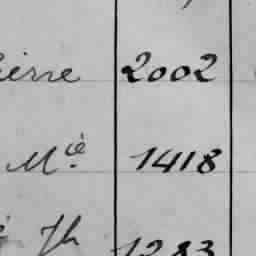 ierre 2002
Mie 1418
Jh 1283